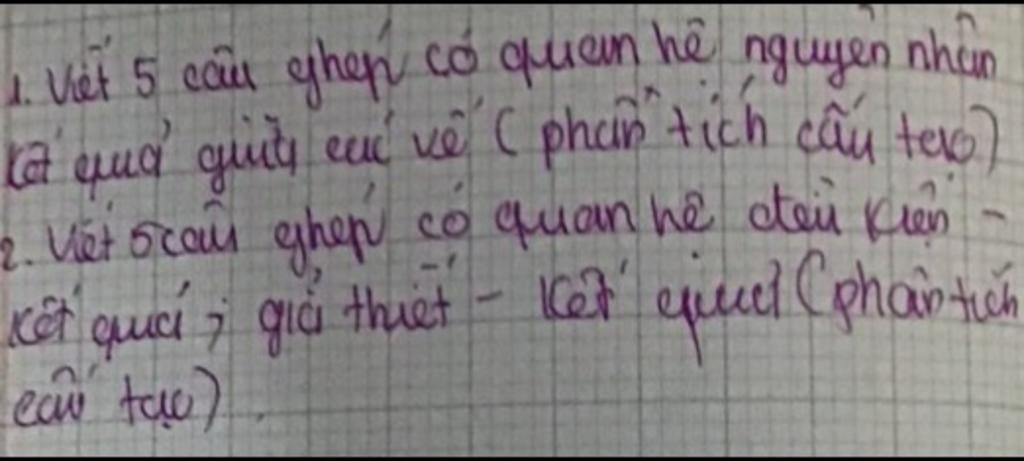 1. Viết 5 câu ghép có quan hệ nguyên nhân
kết quả giữa các vế (phân tích cấu tạo)
2. Viết 5 câu ghép có quan hệ điều kiện -
kết quả; giả thiết - kết quả (phân tích
cấu tạo).